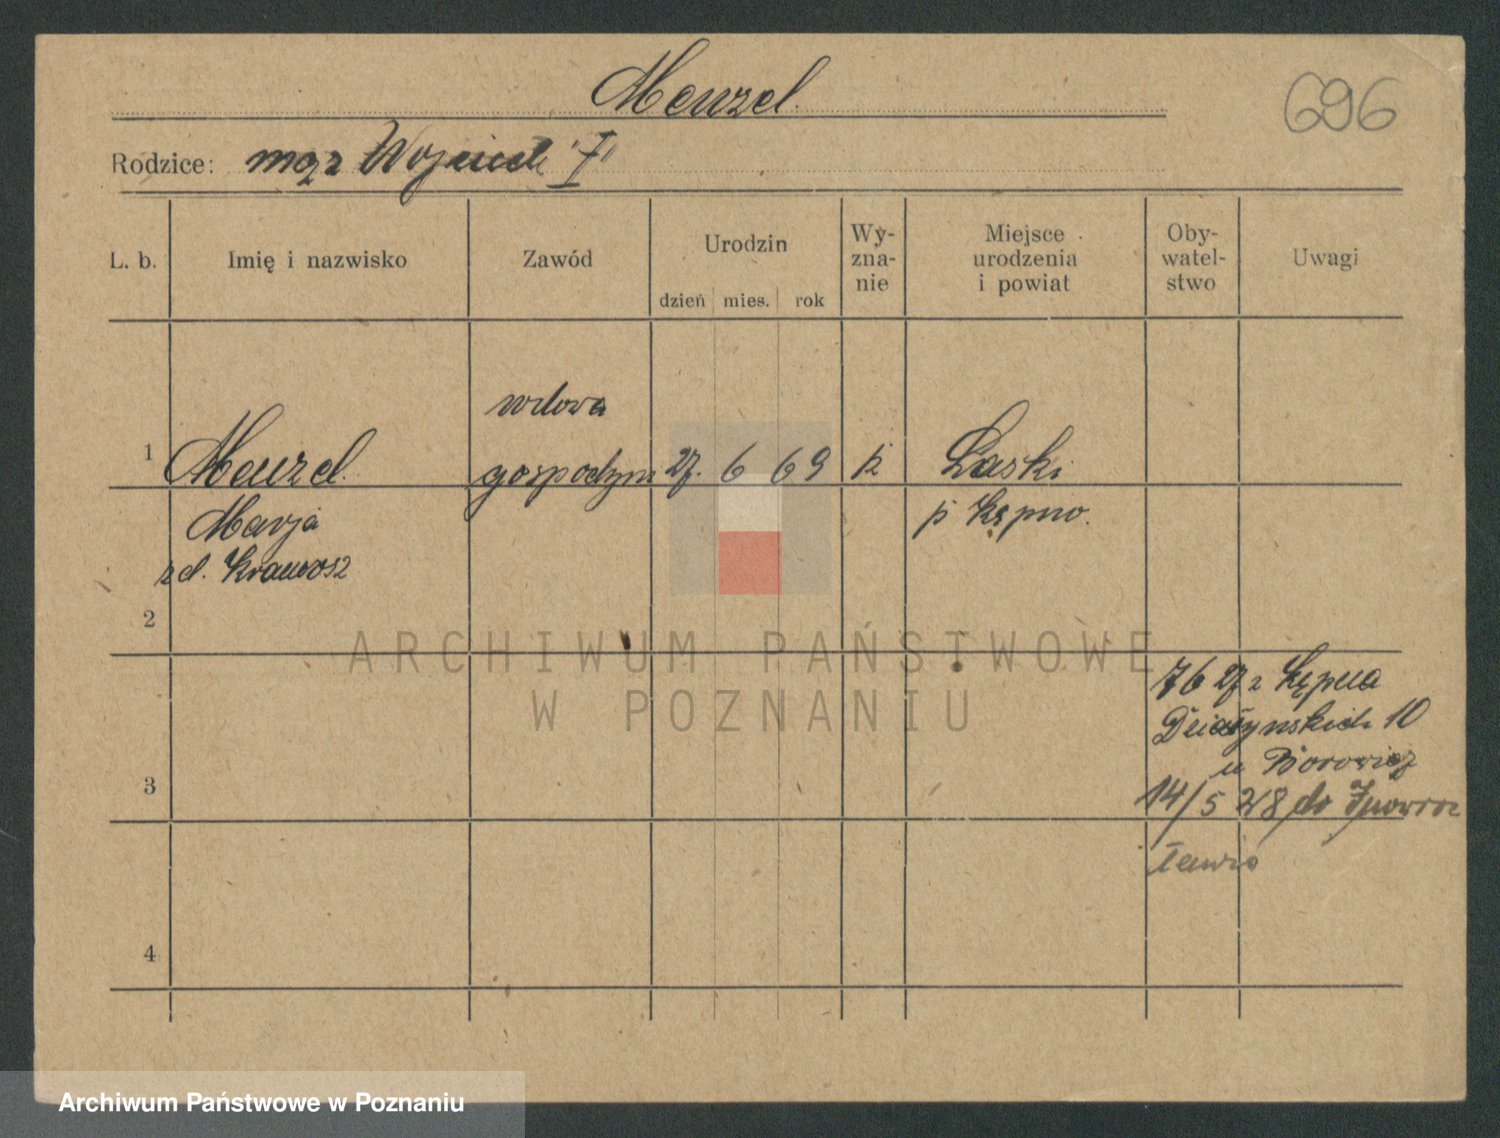 Menzel
696
Rodzice: mąż Wojciech "I"
L. b. Imię i nazwisko Zawód Urodzin dzień mies. rok Wy-zna-nie Miejsce urodzenia i powiat Oby-watel-stwo Uwagi
wdowa
1 Menzel gospodyni 27. 6 69 k Laski
Marja p Kępno.
zd.
2
7 6 27 z Kępna
Działyńskich 10
3 u Borowicz
14/5 28 do Inowroc
ławia
4
ARCHIWUM PAŃSTWOWE
W POZNANIU
Archiwum Państwowe w Poznaniu